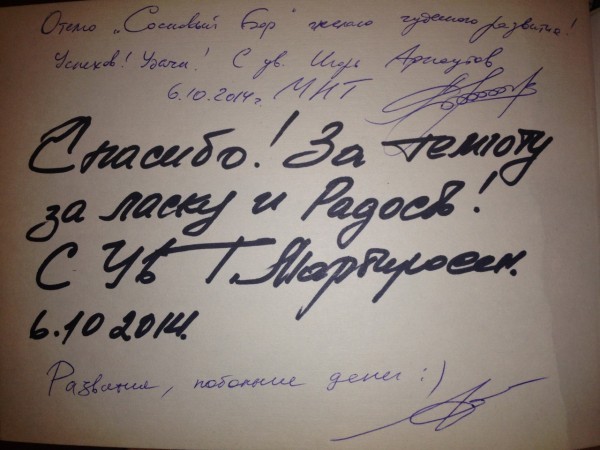 Отелю "Сосновый Бор" желаю чудесного развития!
Успехов! Удачи! С ув. Игорь Арнаутов
6.10.2014г. МНТ
Спасибо! За теплоту
за ласку и Радость!
С Ув Г. Мартиросян.
6.10 2014.
Развития, побольше денег :)